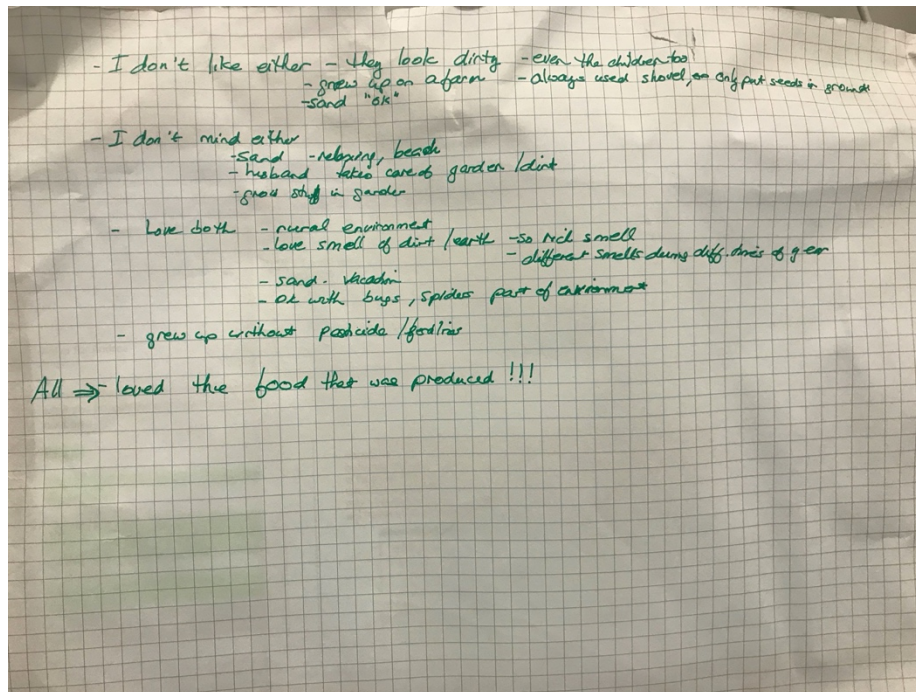 - I don't like either - they look dirty - even the children too
- grew up on a farm - always used shovel, or only put seeds in ground
- sand "ok"
- I don't mind either
- sand - relaxing, beach
- husband takes care of garden / dirt
- grows stuff in garden
- Love both - rural environment
- love smell of dirt / earth - so rich smell
- different smells during diff. times of year
- sand - vacation
- ok with bugs, spiders part of environment
- grew up without pesticide /
All ⇒ - loved the food that was produced !!!